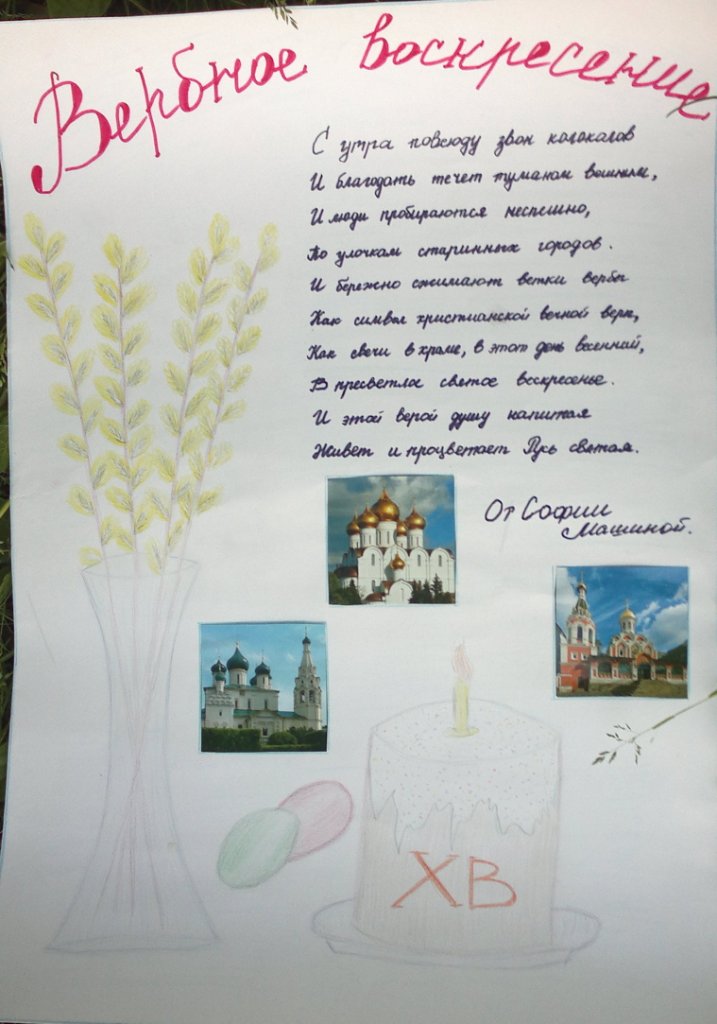 Вербное воскресение
С утра повсюду звон колоколов
И благодать течет туманом вешним,
И люди пробираются неспешно,
По улочкам старинных городов.
И бережно сжимают ветки вербы
Как символ христианской вечной веры,
Как свечи в храме, в этот день весенний,
В пресветлое святое воскресенье.
И этой верой душу напитая
Живет и процветает Русь святая.
От Софии
Машиной.
ХВ